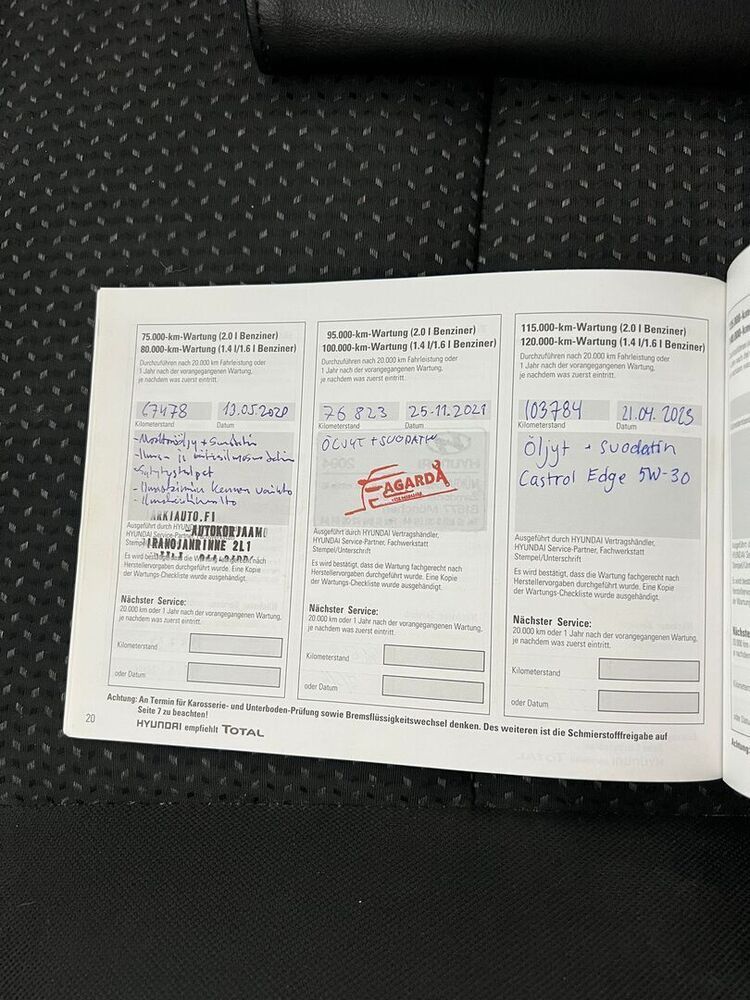 75.000-km-Wartung (2.0 l Benziner)
80.000-km-Wartung (1.4 l/1.6 l Benziner)
Durchzuführen nach 20.000 km Fahrleistung oder
1 Jahr nach der vorangegangenen Wartung,
je nachdem was zuerst eintritt.
67478 13.05.2020
Kilometerstand Datum
- Moottoriöljy + Suodatin
- Ilma- ja
- Sytytystulpat
- Kennon vaihto
ANKIAUTO.FI
-AUTOKORJAAMO
IRANOJANRINNE 2L1
Ausgeführt durch HYUNDAI
HYUNDAI Service-Partner,
Stempel/
Es wird bestätigt, dass die Wartung fachgerecht nach
Herstellervorgaben durchgeführt wurde. Eine Kopie
der Wartungs-Checkliste wurde ausgehändigt.
Nächster Service:
20.000 km oder 1 Jahr nach der vorangegangenen Wartung,
je nachdem was zuerst eintritt.
Kilometerstand
oder Datum
95.000-km-Wartung (2.0 l Benziner)
100.000-km-Wartung (1.4 l/1.6 l Benziner)
Durchzuführen nach 20.000 km Fahrleistung oder
1 Jahr nach der vorangegangenen Wartung,
je nachdem was zuerst eintritt.
76 823 25-11.2021
Kilometerstand Datum
ÖLJYT + SUODATIN
AGARDA
Ausgeführt durch HYUNDAI Vertragshändler,
HYUNDAI Service-Partner, Fachwerkstatt
Stempel/Unterschrift
Es wird bestätigt, dass die Wartung fachgerecht nach
Herstellervorgaben durchgeführt wurde. Eine Kopie
der Wartungs-Checkliste wurde ausgehändigt.
Nächster Service:
20.000 km oder 1 Jahr nach der vorangegangenen Wartung,
je nachdem was zuerst eintritt.
Kilometerstand
oder Datum
115.000-km-Wartung (2.0 l Benziner)
120.000-km-Wartung (1.4 l/1.6 l Benziner)
Durchzuführen nach 20.000 km Fahrleistung oder
1 Jahr nach der vorangegangenen Wartung,
je nachdem was zuerst eintritt.
103784 21.04.2023
Kilometerstand Datum
Öljyt + suodatin
Castrol Edge 5W-30
Ausgeführt durch HYUNDAI Vertragshändler,
HYUNDAI Service-Partner, Fachwerkstatt
Stempel/Unterschrift
Es wird bestätigt, dass die Wartung fachgerecht nach
Herstellervorgaben durchgeführt wurde. Eine Kopie
der Wartungs-Checkliste wurde ausgehändigt.
Nächster Service:
20.000 km oder 1 Jahr nach der vorangegangenen Wartung,
je nachdem was zuerst eintritt.
Kilometerstand
oder Datum
Achtung: An Termin für Karosserie- und Unterboden-Prüfung sowie Bremsflüssigkeitswechsel denken. Des weiteren ist die Schmierstofffreigabe auf
Seite 7 zu beachten!
20
HYUNDAI empfiehlt TOTAL